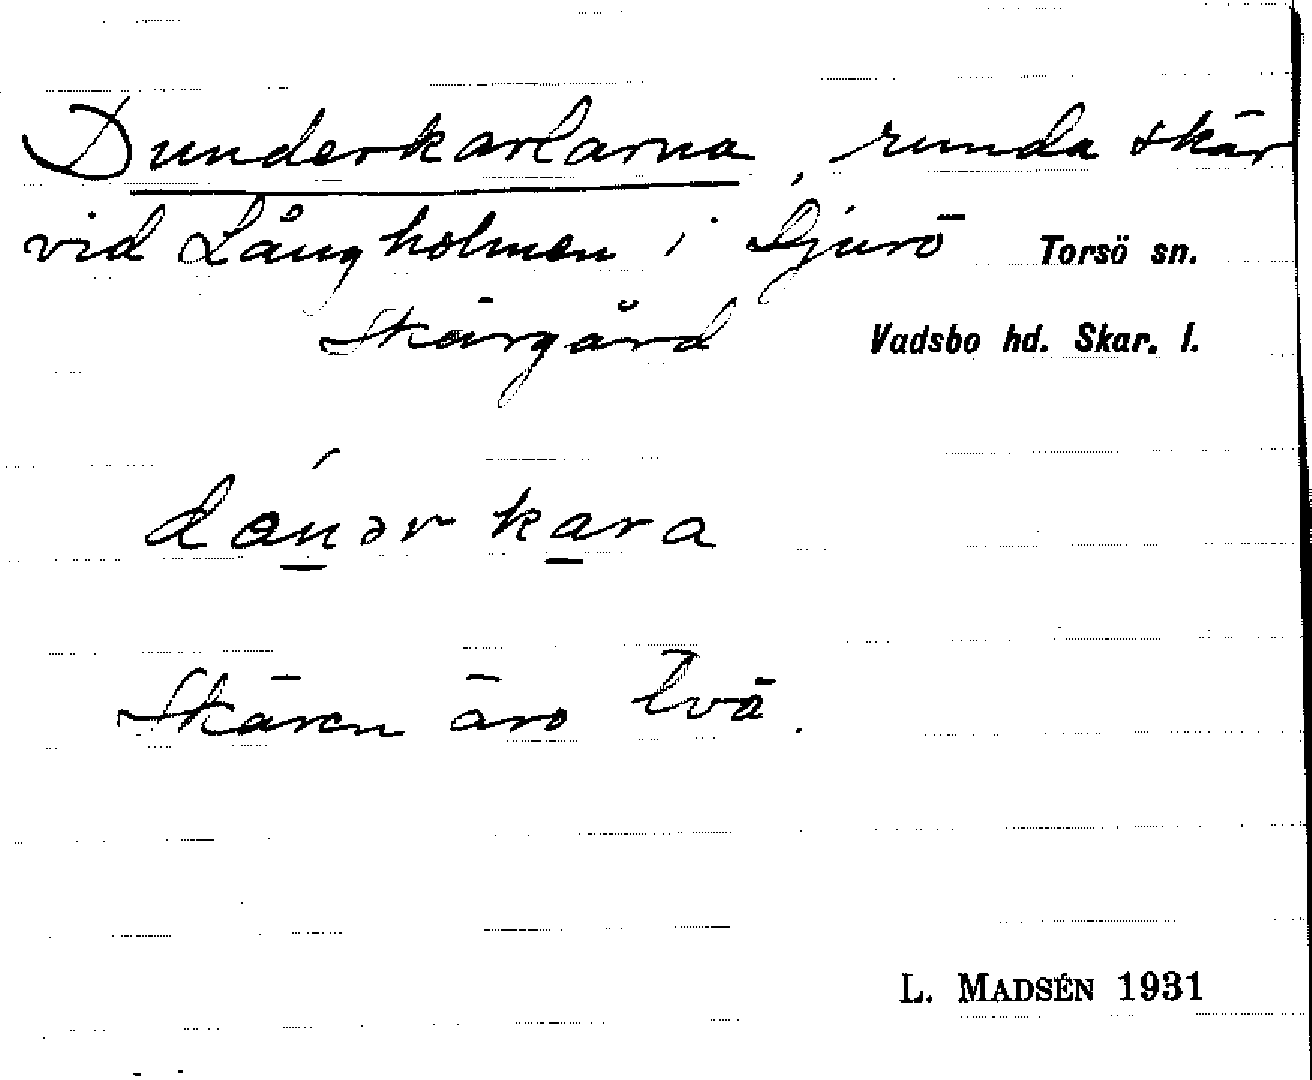 Dunderkarlarna, runda skär
vid Långholmen i Djurö Torsö sn.
Skärgård Vadsbo hd. Skar. l.
dánər kara
Skären äro två.
L. MADSÉN 1931